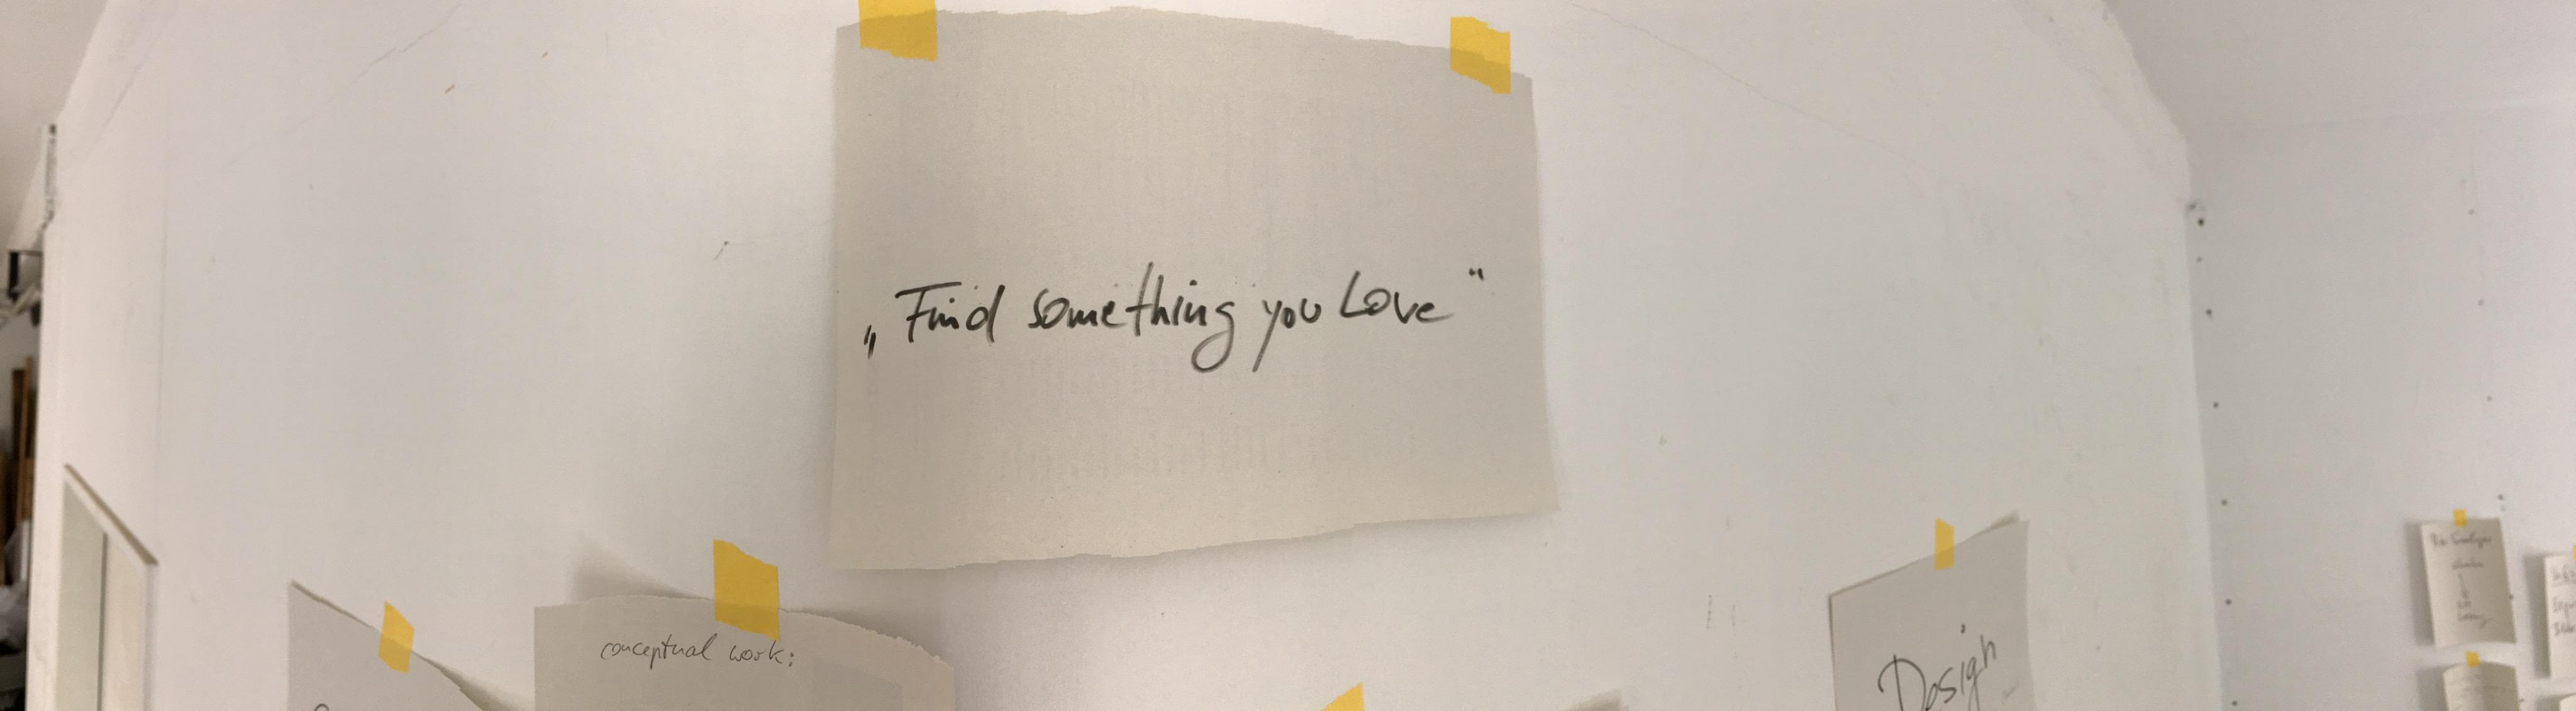 „Find something you Love“
conceptual work:
Design